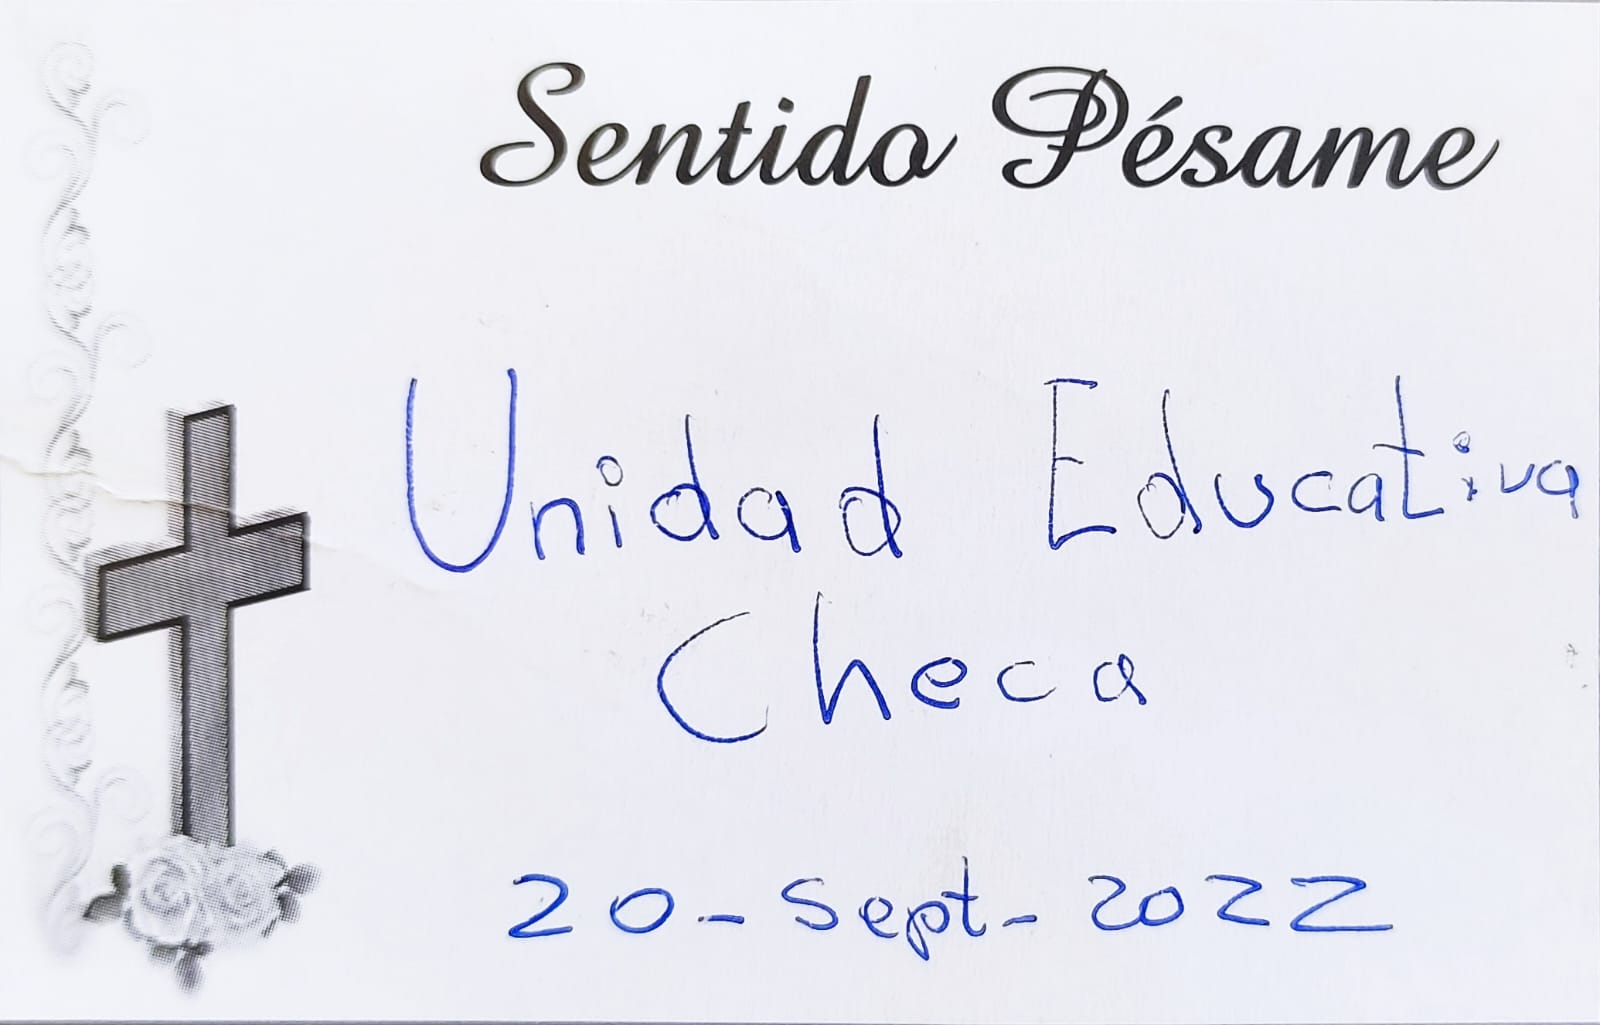 Sentido Pésame
Unidad Educativa
Checa
20-Sept-2022